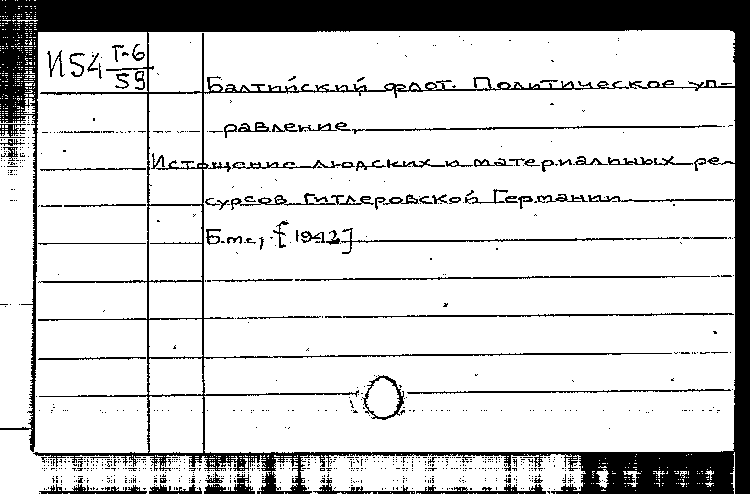 И54 Г-6
59
Балтийский флот. Политическое уп-
равление,
Истощение людских и материальных ре-
сурсов гитлеровской Германии
Б.м., [1942]